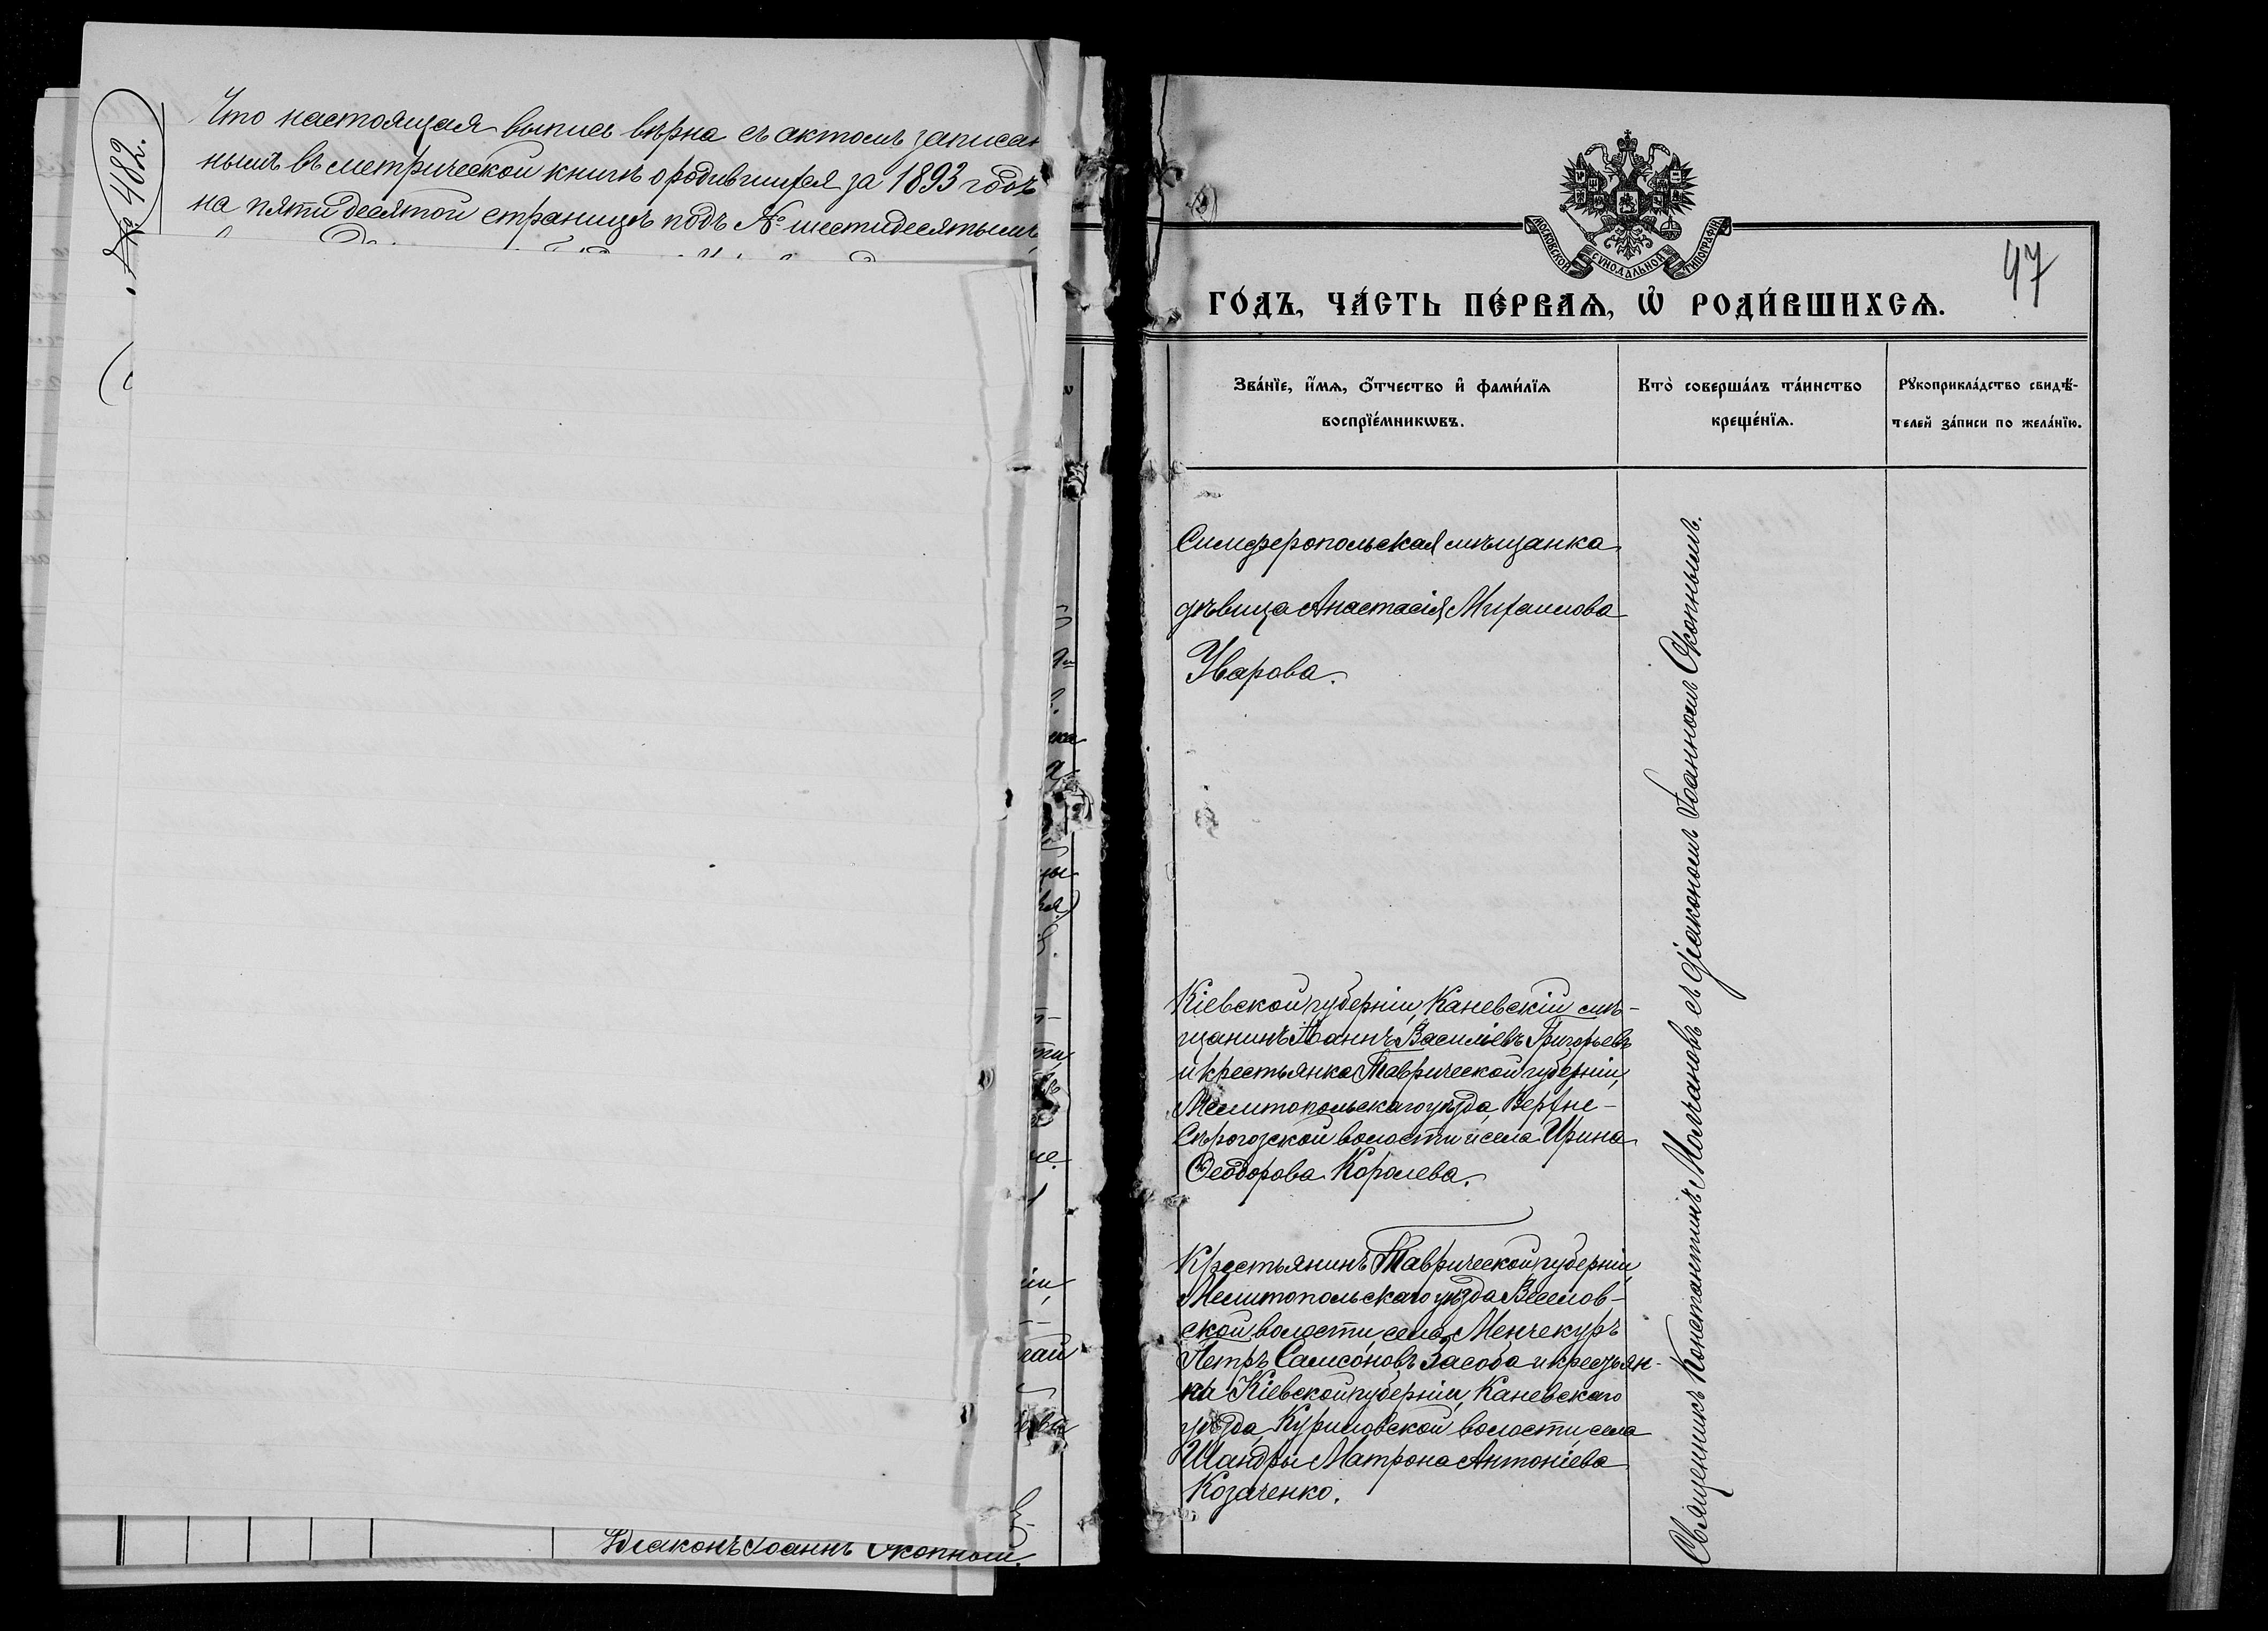 № 482.
Что настоящая выпись вѣрна съ актомъ записан
нымъ въ метрической книгѣ о родившихся за 1893 годъ
на пятидесятой страницѣ подъ № шестидесятымъ
Діаконъ Іоаннъ Окопный.
МОСКОВСКОЙ СУНОДАЛЬНОЙ ТИПОГРАФІИ
47
ГО́ДЪ, ЧА́СТЬ ПЕ́РВАѦ, Ѡ҆ РОДИ́ВШИХСѦ.
Зва́нїе, и҆́мѧ, ѻ҆́тчество и҆ фами́лїѧ
воспрїе́мникѡвъ.
Кто̀ соверша́лъ та́инство
креще́нїѧ.
Рꙋкоприкла́дство свидѣ́-
телей за́писи по жела́нїю.
Симферопольская мѣщанка
дѣвица Анастасія Михаилова
Уварова.
Кіевской губерніи, Каневскій мѣ-
щанинъ Іоаннъ Василіевъ Григорьевъ
и крестьянка Таврической губерніи,
Мелитопольскаго уѣзда, Верхне-
Сѣрогозской волости и села Ирина
Ѳеодорова Королева.
Крестьянинъ Таврической губерніи,
Мелитопольскаго уѣзда Веселов-
ской волости, села Менчекуръ
Петръ Самсоновъ Засоба и крестьян-
ка Кіевской губерніи, Каневскаго
уѣзда, Куриловской волости, села
Шандры Матрона Антоніева
Козаченко.
Священникъ Константинъ Молчановъ съ діакономъ Іоанномъ Окопнымъ.